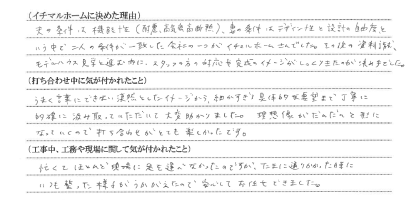 （イチマルホームに決めた理由）
夫の条件は機能性（耐震、高気密高断熱）、妻の条件はデザイン性と設計の自由度と
いう中で二人の条件が一致した会社の一つがイチマルホームさんでした。その後の資料請求、
モデルハウス見学と進む内に、スタッフの方の対応や完成のイメージがしっくりきたのが決め手でした。
（打ち合わせ中に気が付かれたこと）
うまく言葉にできない漠然としたイメージから、細かすぎる具体的な要望まで丁寧に
的確に汲み取っていただいて大変助かりました。理想像がだんだんと形に
なっていくので打ち合わせがとても楽しかったです。
（工事中、工務や現場に関して気が付かれたこと）
忙しくてほとんど現場に足を運べなかったのですが、たまに通りかかった時に
いつも整った様子がうかがえたので安心してお任せできました。